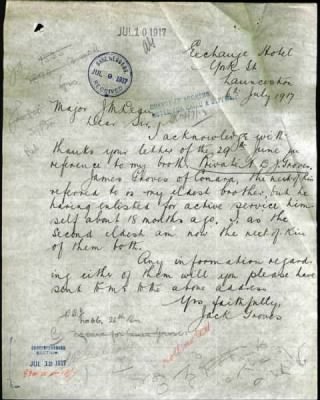 JUL 10 1917
Exchange Hotel
York St
Launceston
6th July 1917
RECEIVED
JUL 9 1917
Major J. M. Lean
Dear Sir,
I acknowledge with
thanks your letter of the 29th June in
reference to my broth. Private A. E. J. Groves.
James Groves of Conara, the next of kin
referred to is my eldest brother, but he
having enlisted for active service him
self about 18 months ago, I as the
second eldest am now the next of kin
of them both.
Any information regard
ing either of them will you please have
sent to me to the above address
Yrs. faithfully,
Jack Groves
26th Bn
JUL 12 1917